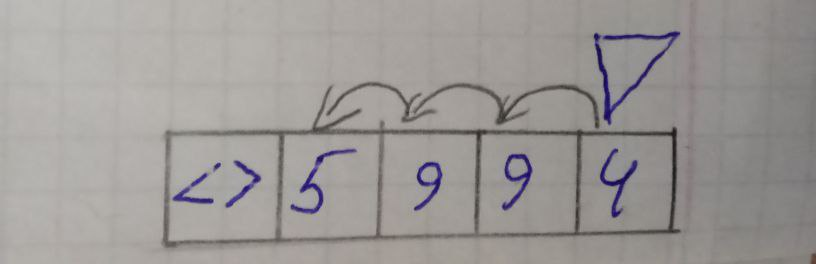 <> 5 9 9 4